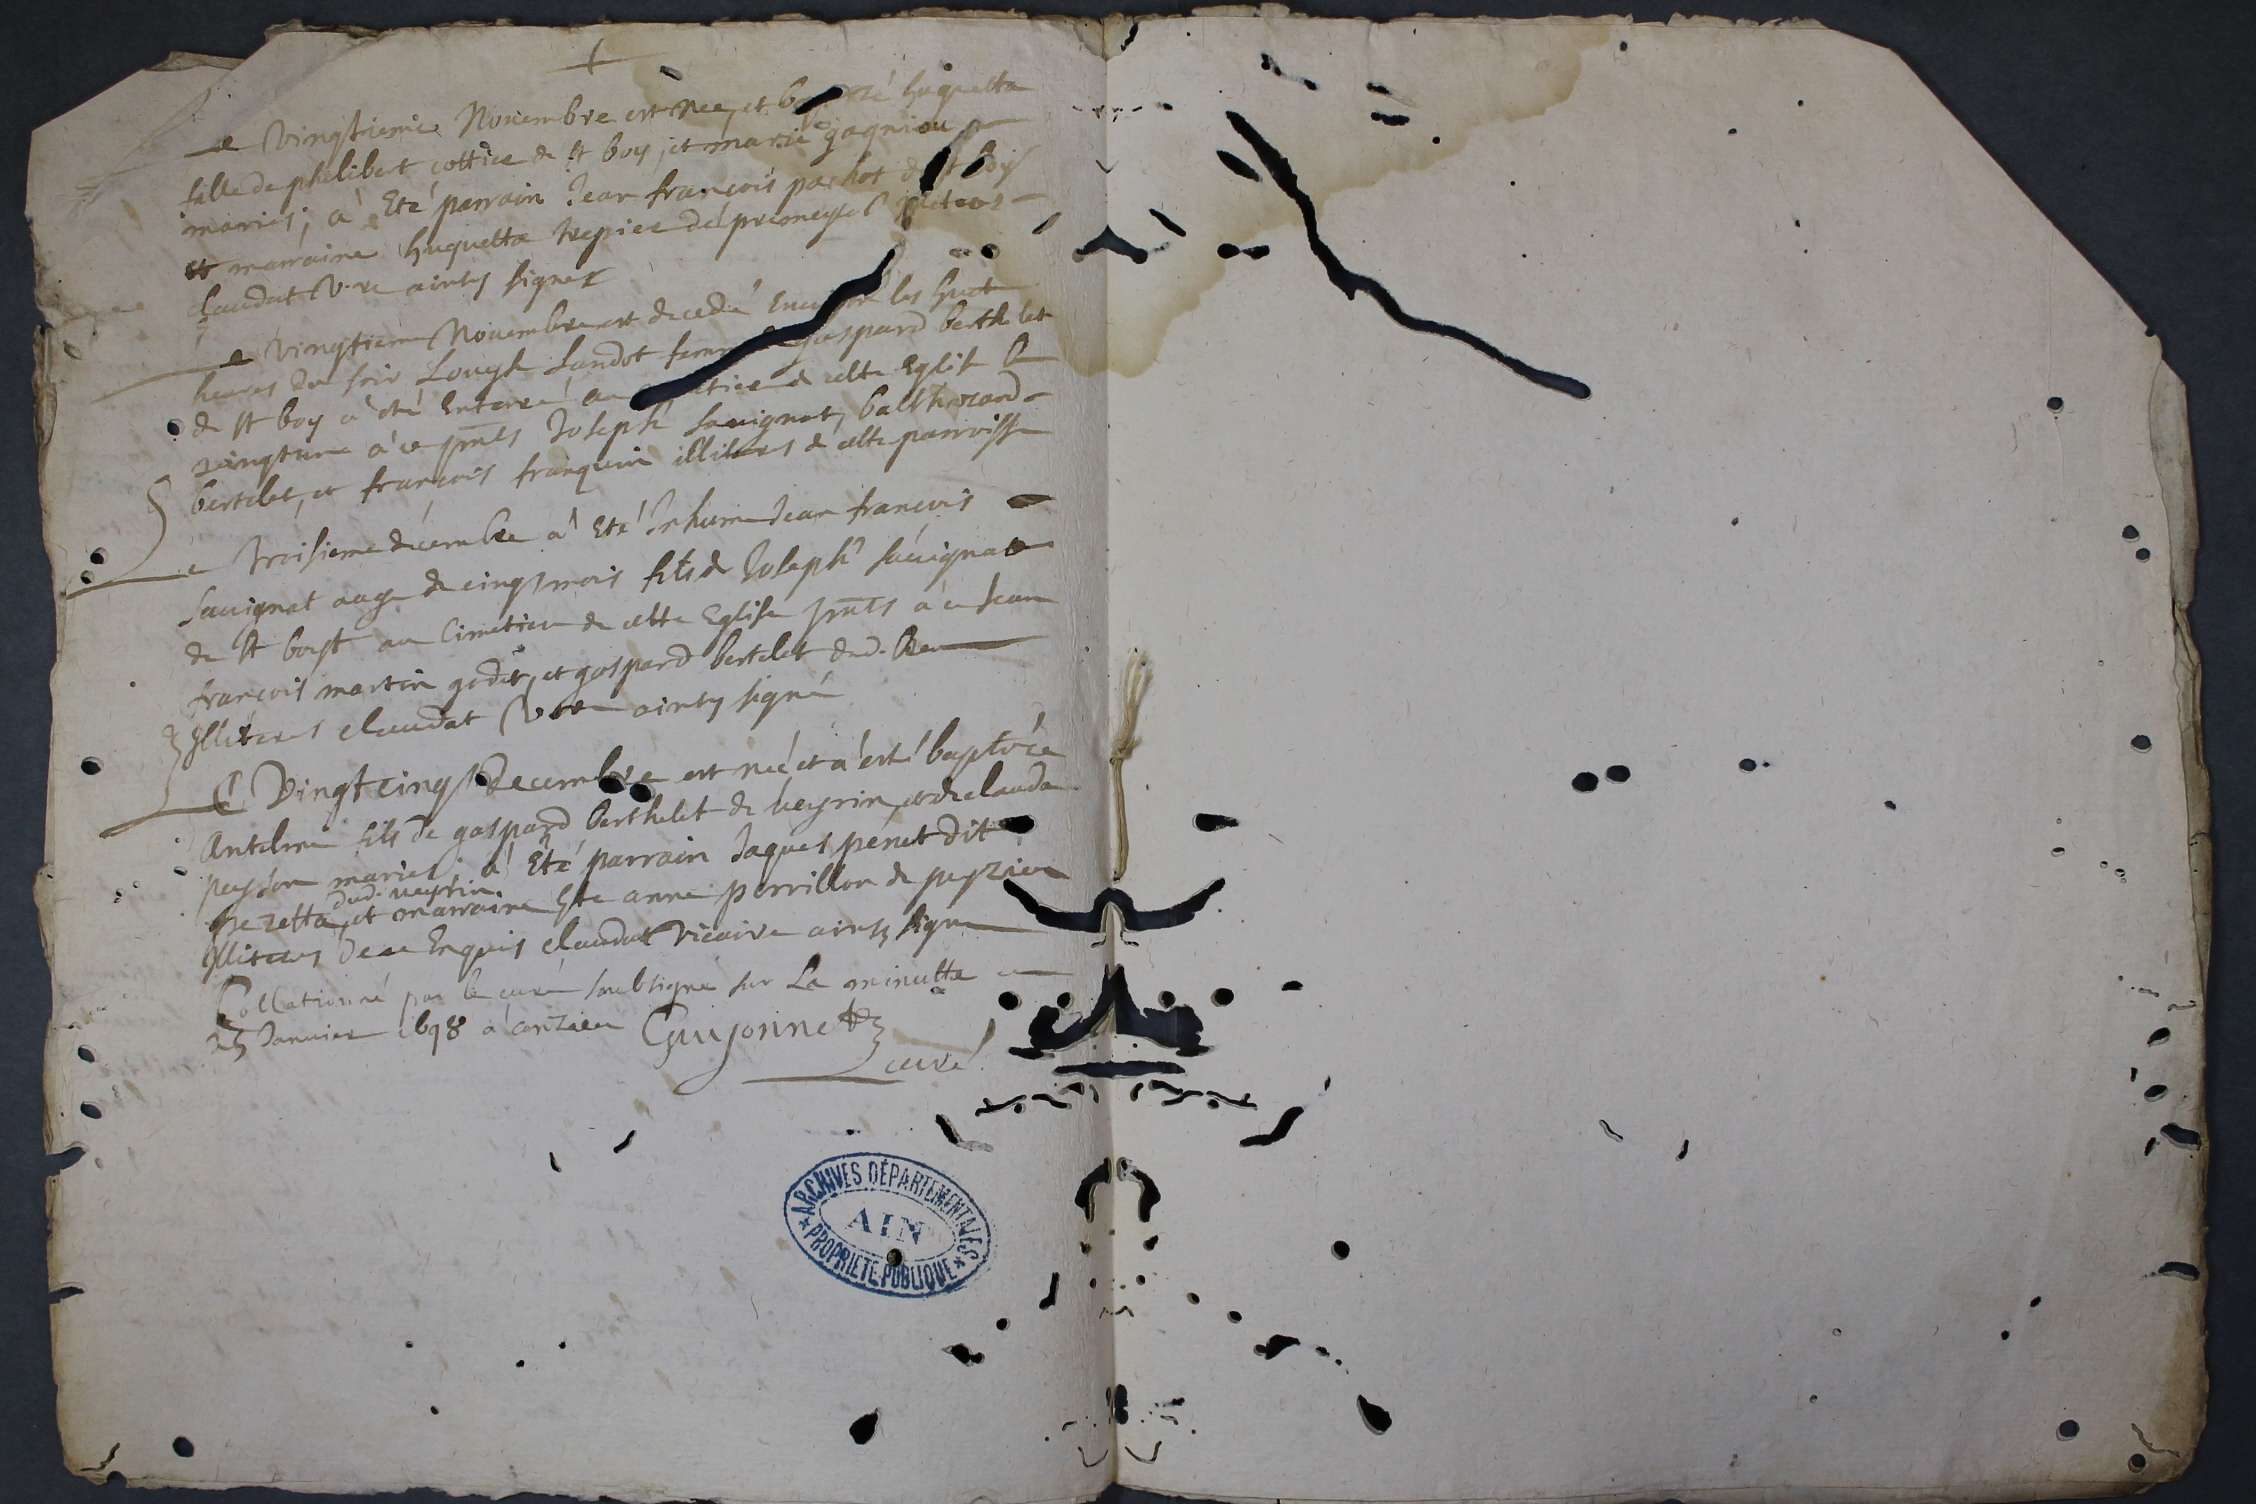 Le Vingtieme Novembre est nee, et huguetta
fille de philibert cottier de st boy, et marie gagniou
mariés; a Eté parrain Jean françois pachot de st boys
et marraine huguetta
claudat v.re ainsy signez
Le vingtieme Novembre est decedé les huit
heures du soir Louyse Landot femme gaspard berthelet
de st boy a été Enterré au de cette Eglise le
vingtune à ce pnts Joseph sauignat,
bertelet, et francois franquin illiteres de cette parroisse
Le troisieme décembre a Eté Inhumé Jean francois
sauignat aagé de cinqs mois fils de Joseph sauignat
de st boys au Cimetiere de cette Eglise pnts a ce Jean
francois martin godet, et gaspard bertelet dud. lieu
Illiteres claudat v.re ainsy signé
Le Vingt cinqs decembre est né et a esté baptisée
Antelme fils de gaspard berthelet de veyrin, et de clauda
peyson mariés; a Eté parrain Jaques penet dit
dud. veyrin
et marraine hte anne perrillon de peyzieu
Illiteres de ce Enquis claudat vicaire ainsy signe
Collationné par le curé soubsigné sur La minutte ce
25 Januier 1698 a conzieu Guyonnet
curé
ARCHIVES DÉPARTEMENTALES
AIN
PROPRIÉTÉ PUBLIQUE